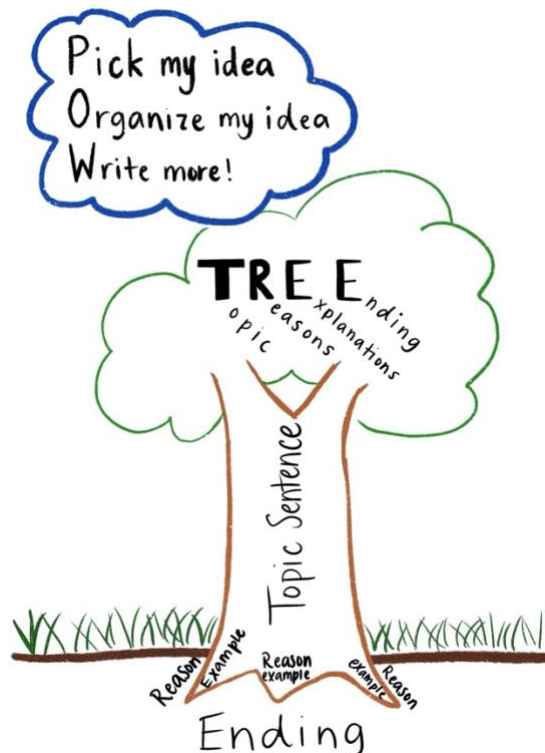 Pick my idea
Organize my idea
Write more!
TREE
opic
easons
xplanations
nding
Topic Sentence
Reason
Example
Reason
example
example
Reason
Ending